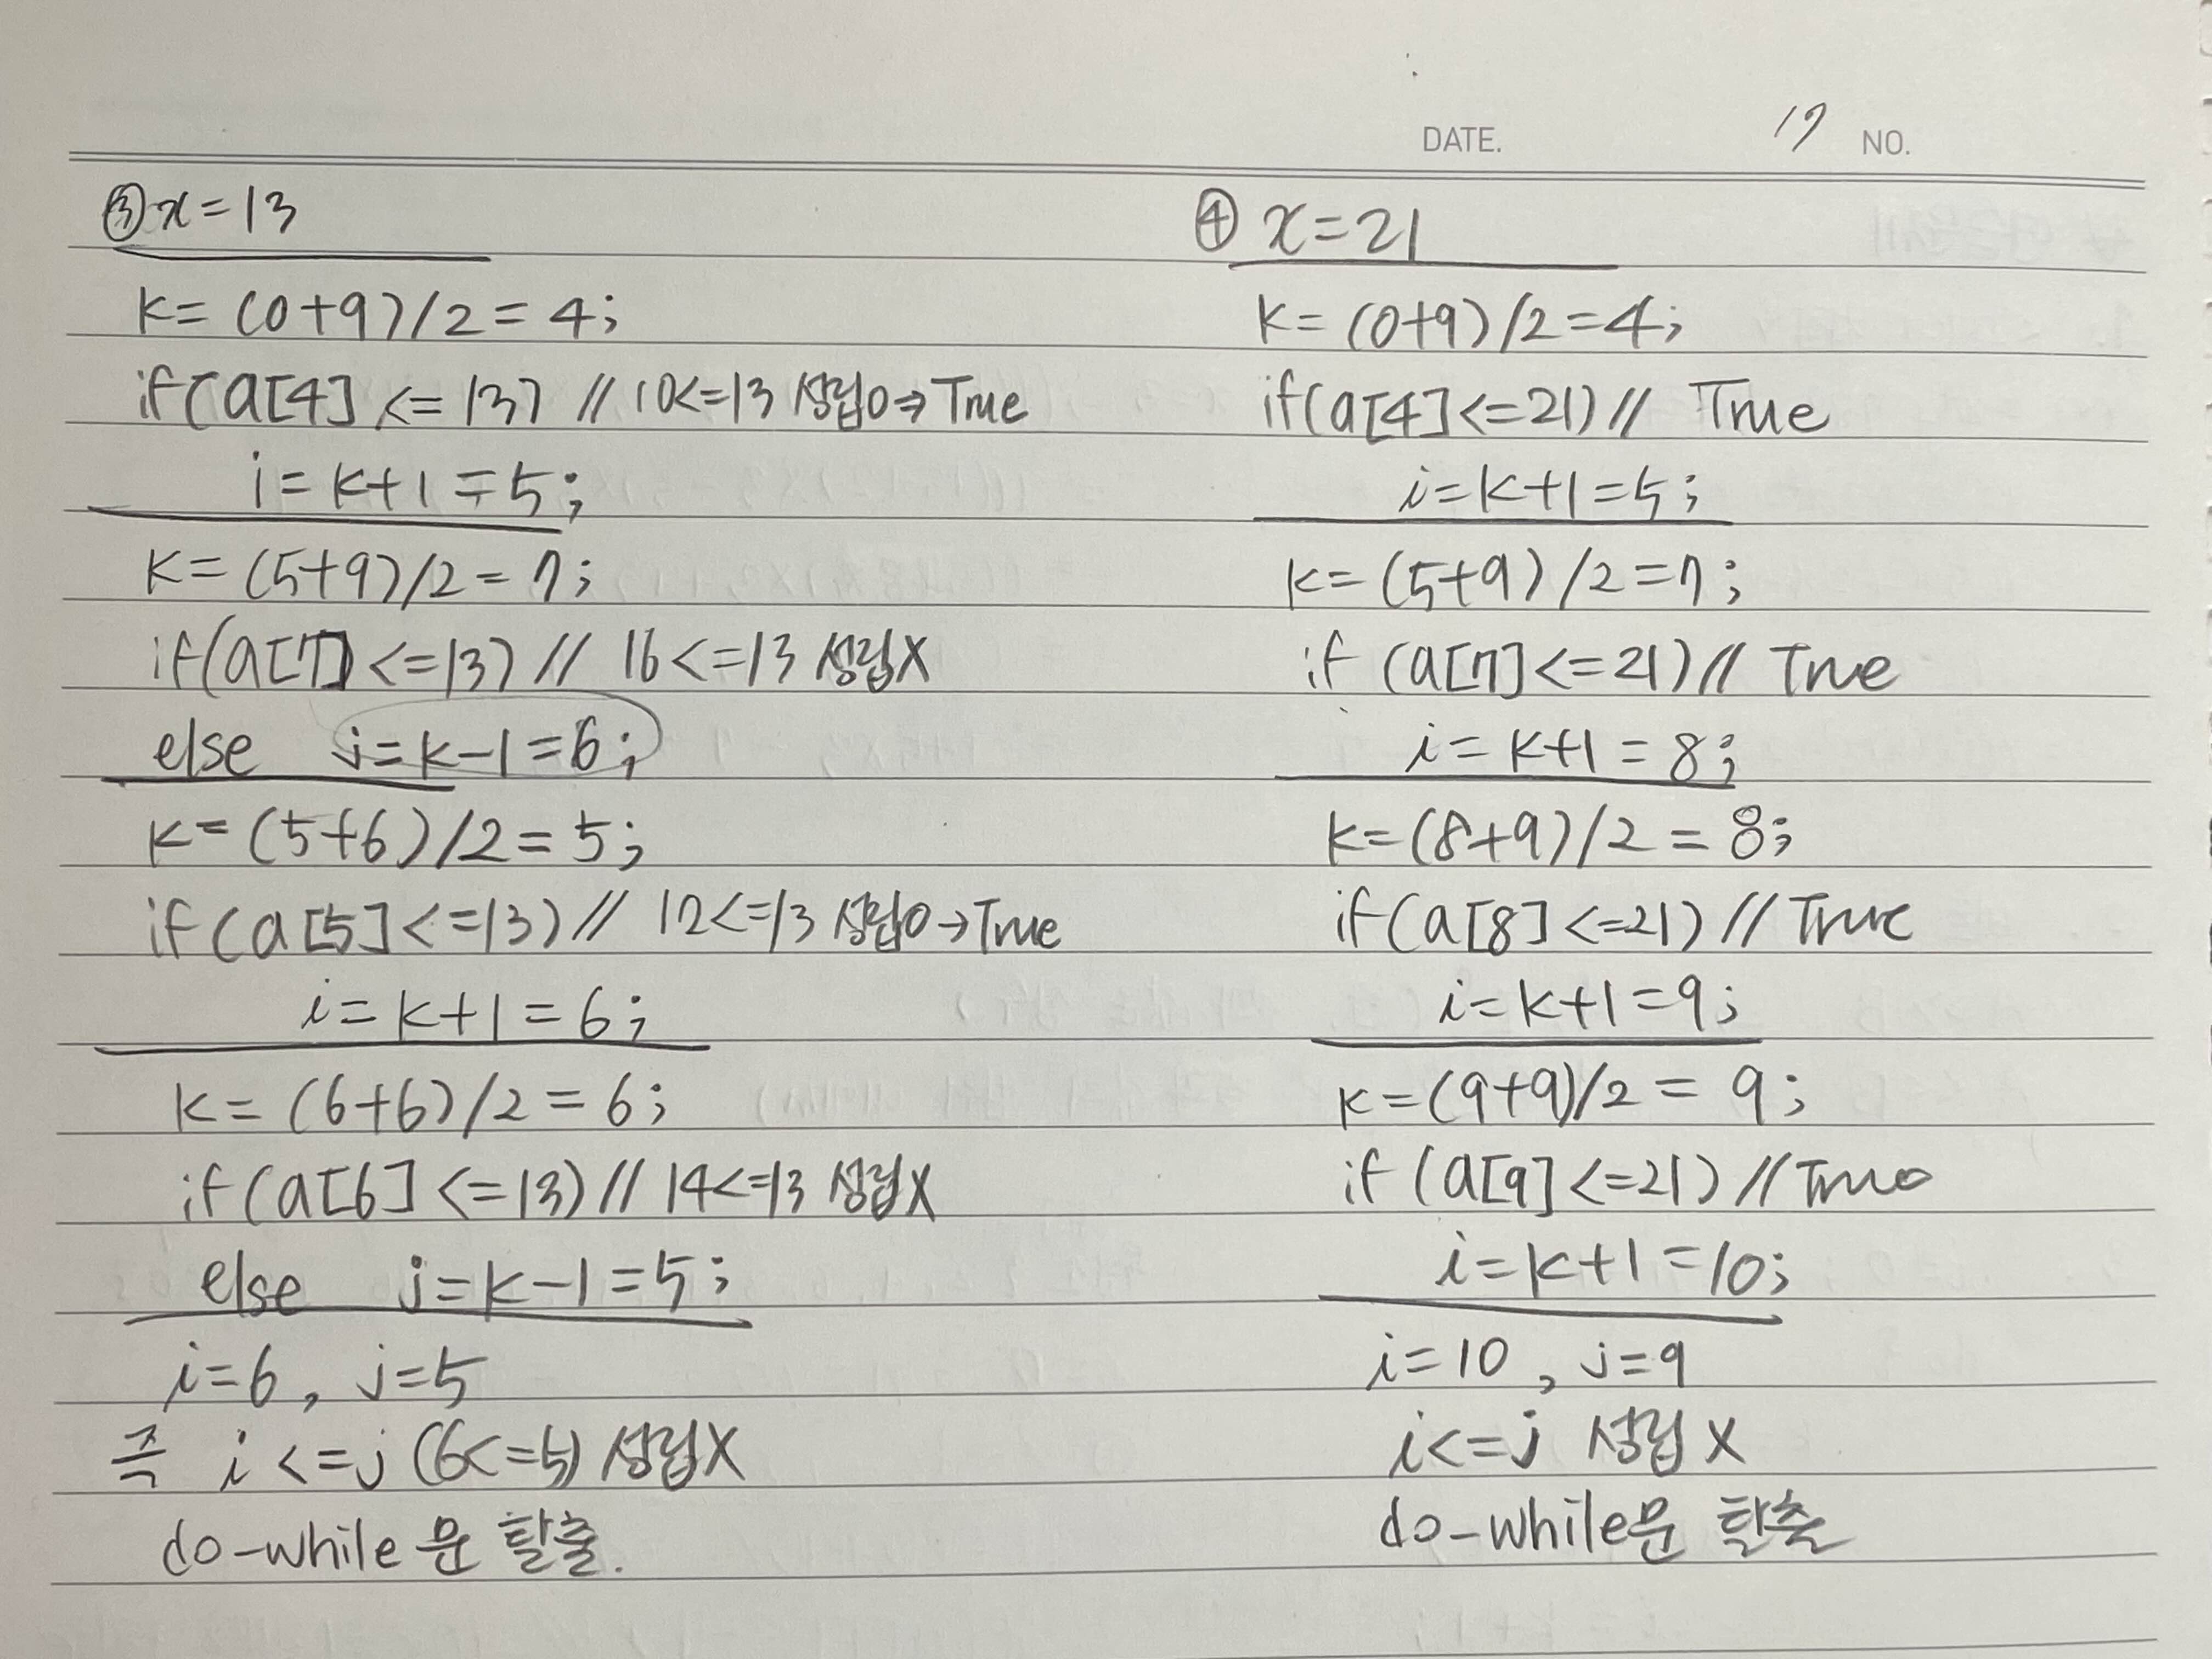 DATE. 19 NO.
③ x=13
k= (0+9)/2 = 4;
if(a[4] <= 13) // 10<=13 성립O→True
i= k+1 = 5;
k= (5+9)/2 = 7;
if(a[7] <=13) // 16<=13 성립X
else j=k-1=6;
k= (5+6)/2=5;
if(a[5]<=13) // 12<=13 성립O→True
i=k+1=6;
k= (6+6)/2=6;
if(a[6]<=13) // 14<=13 성립X
else j=k-1=5;
i=6, j=5
즉 i<=j (6<=5) 성립X
do-while 문 탈출.
④ x=21
k= (0+9)/2=4;
if(a[4]<=21) // True
i=k+1=5;
k=(5+9)/2=7;
if (a[7]<=21) // True
i=k+1=8;
k=(8+9)/2=8;
if(a[8]<=21) // True
i=k+1=9;
k=(9+9)/2=9;
if (a[9]<=21) // True
i=k+1=10;
i=10, j=9
i<=j 성립X
do-while문 탈출